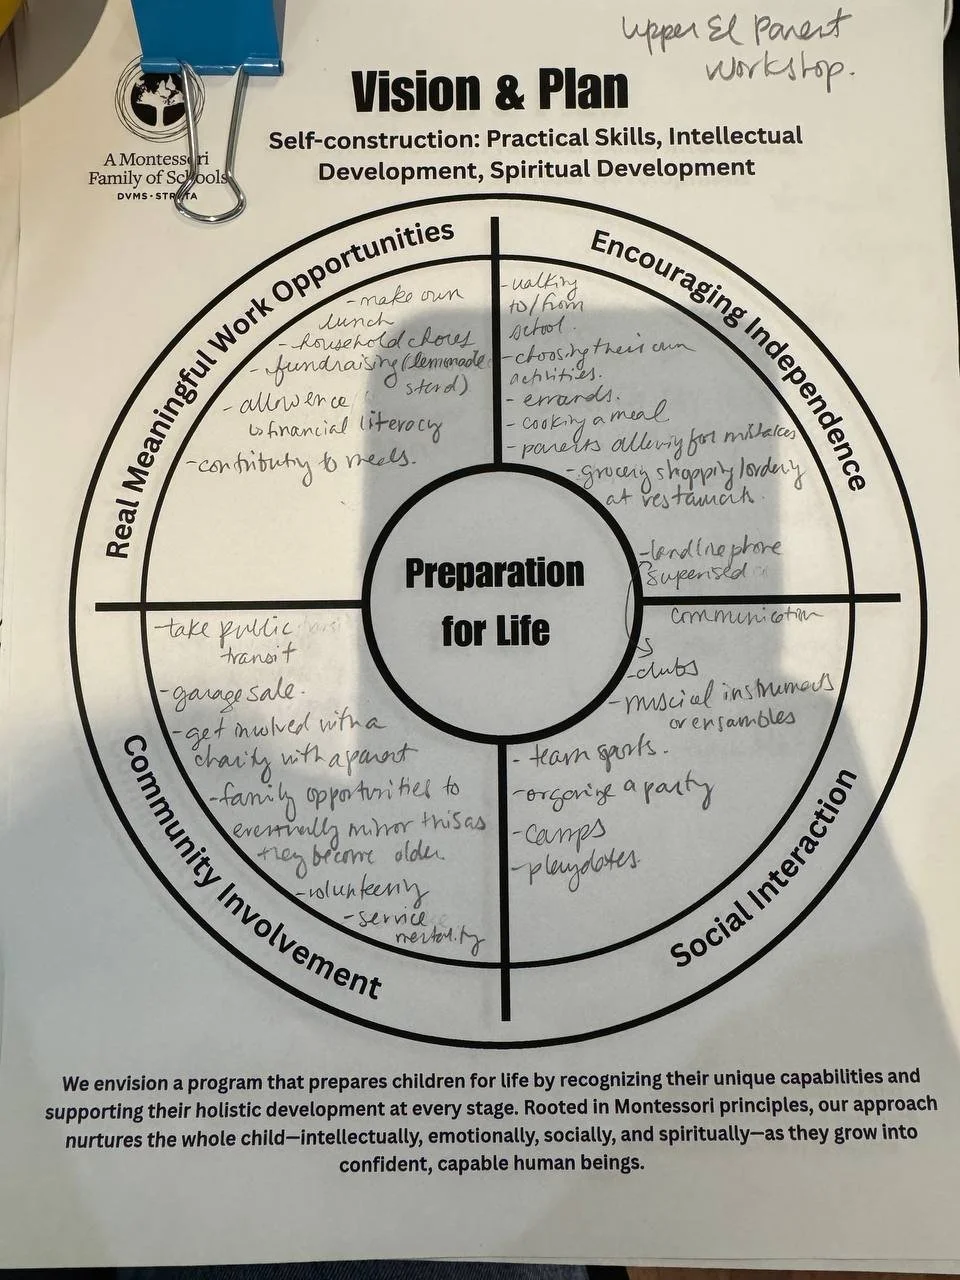 Upper El Parent
Workshop.
Vision & Plan
Self-construction: Practical Skills, Intellectual
Development, Spiritual Development
A Montessori
Family of Schools
DVMS · STRATA
Real Meaningful Work Opportunities
- make own
lunch
- household chores
- fundraising (lemonade
stand)
- allowence
↳ financial literacy
- contributing to meals.
Encouraging Independence
- walking
to/from
school.
- choosing their own
activities.
- errands.
- cooking a meal
- parents allowing for mistakes
- grocery shopping/ordering
at restaurants.
- landline phone
supervised
Preparation
for Life
- take public
transit
- garage sale.
- get involved with a
charity with a parent
- family opportunities to
eventually mirror this as
they become older.
- volunteering
- service
mentality
Community Involvement
communication
- clubs
- musical instruments
or ensambles
- team sports.
- organize a party
- camps
- playdates.
Social Interaction
We envision a program that prepares children for life by recognizing their unique capabilities and
supporting their holistic development at every stage. Rooted in Montessori principles, our approach
nurtures the whole child—intellectually, emotionally, socially, and spiritually—as they grow into
confident, capable human beings.